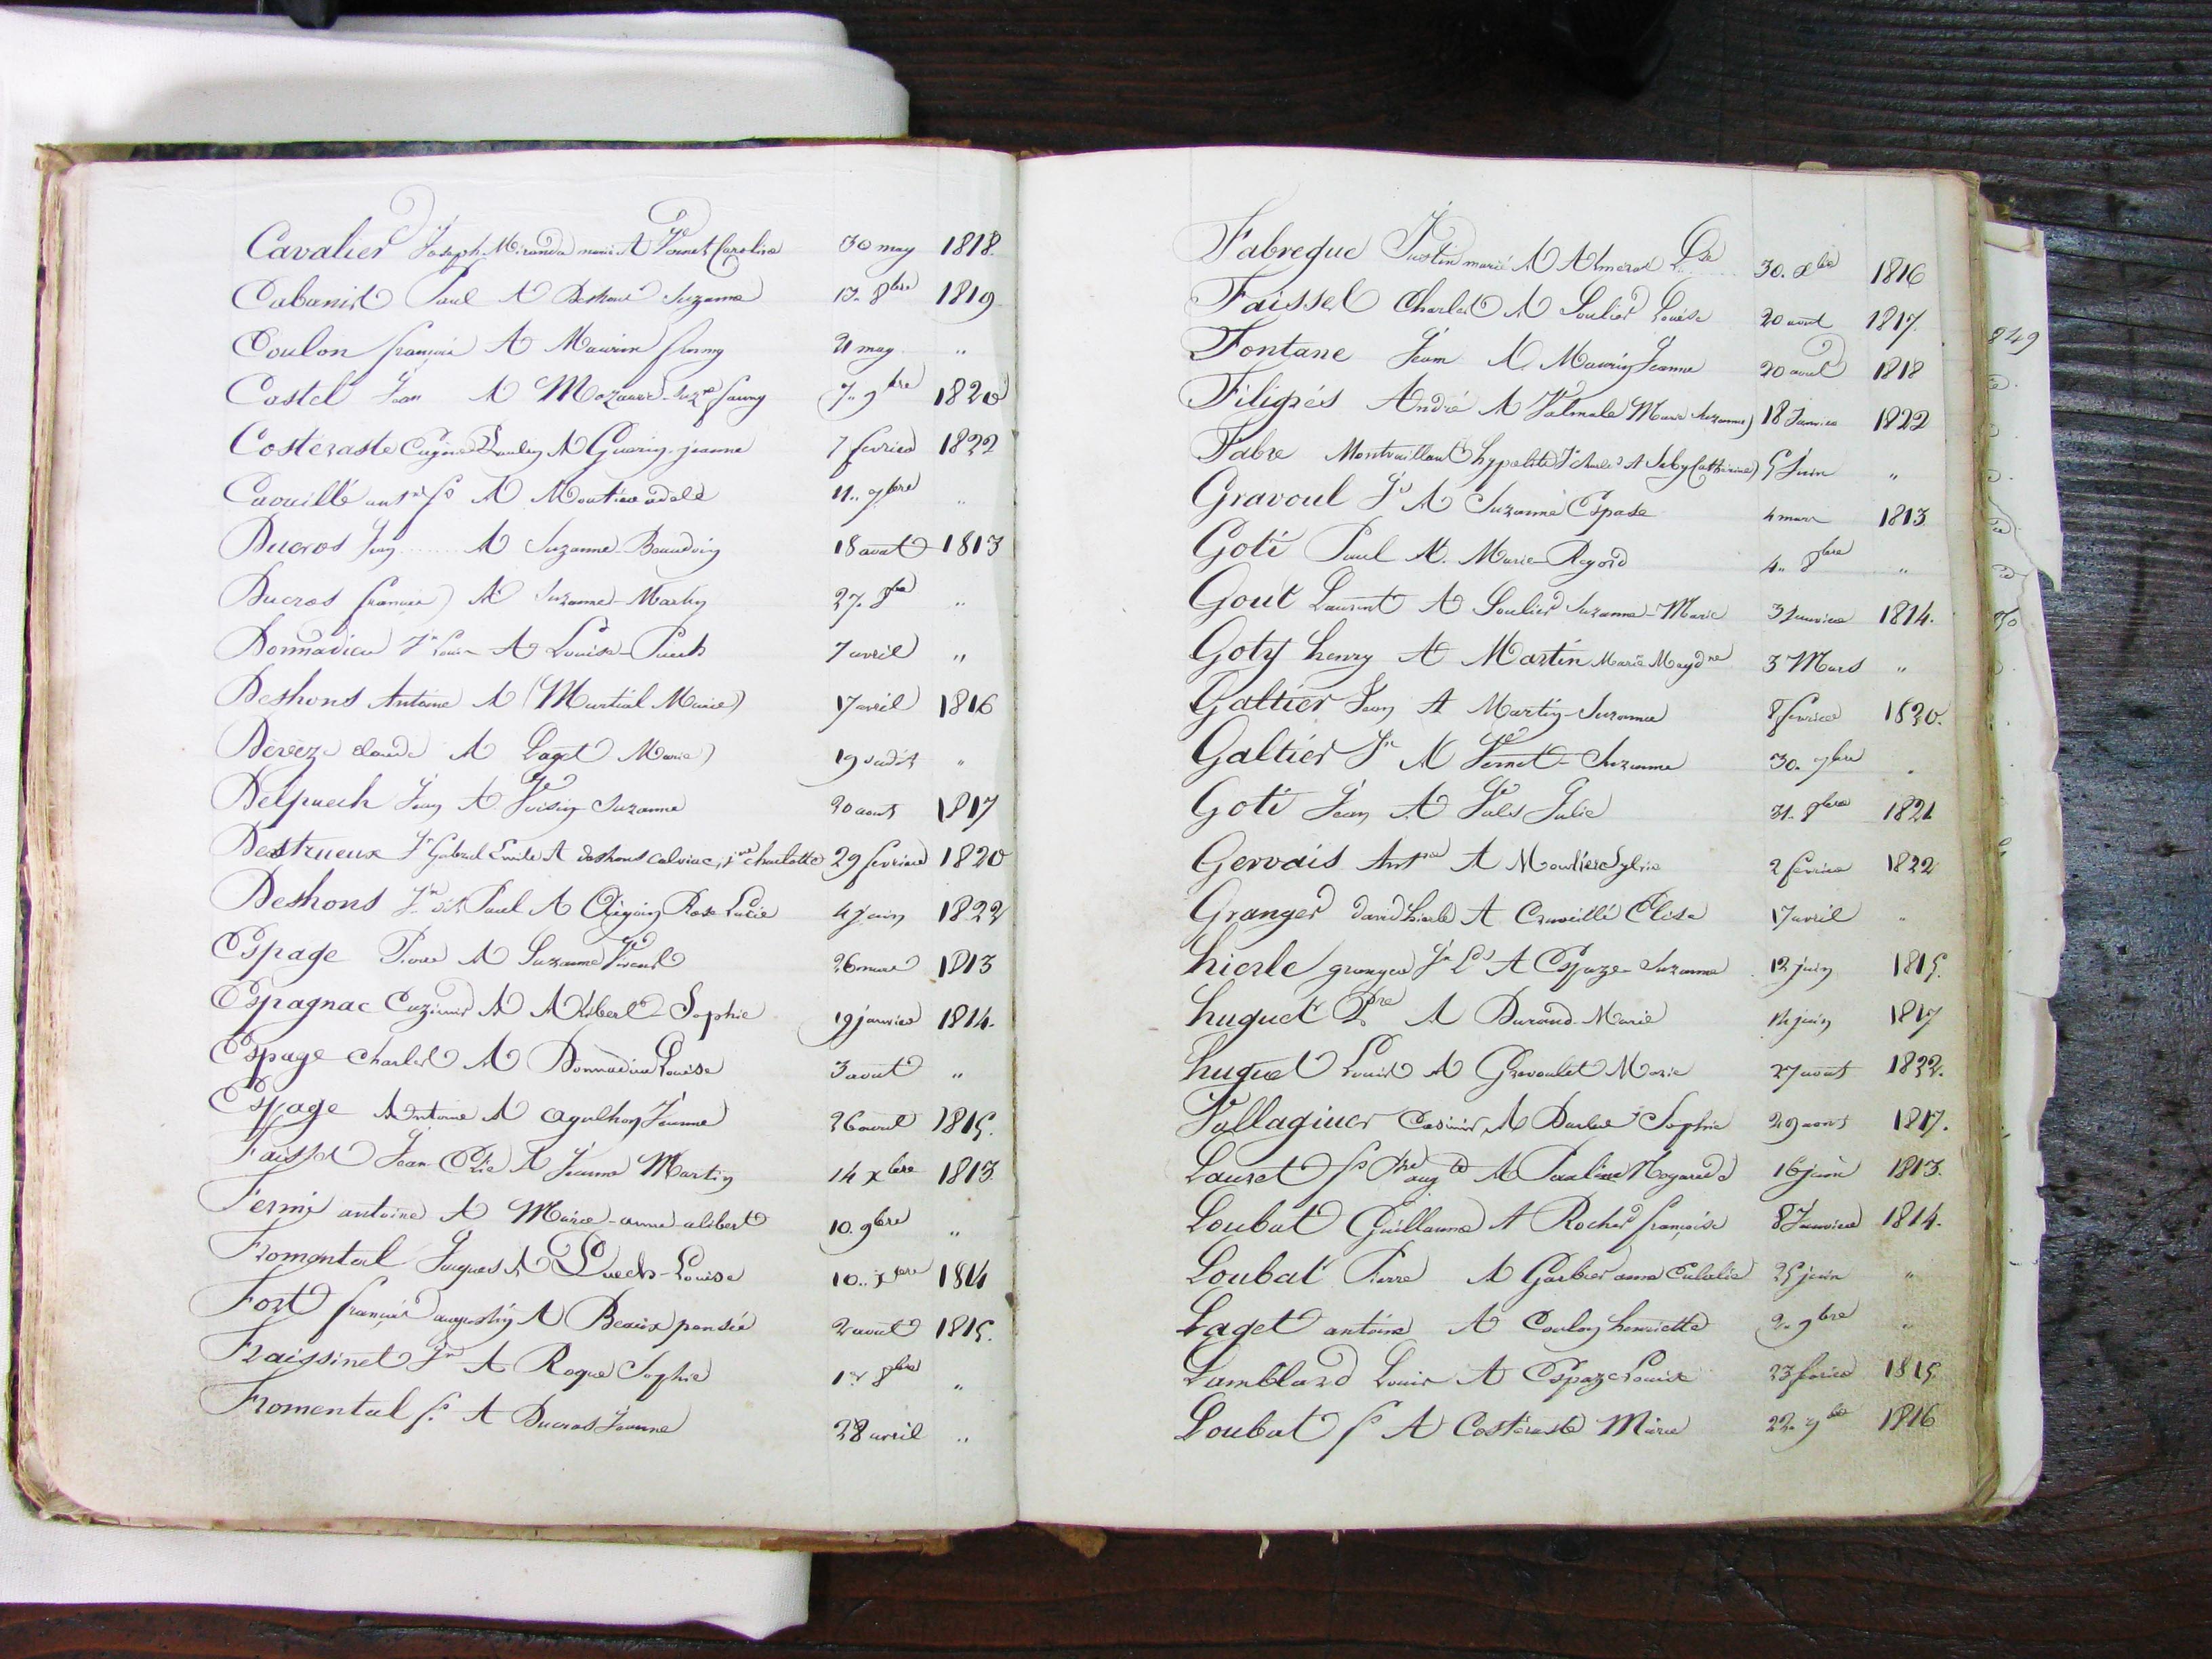 Cavalier Joseph Miranda marié A Vernet Caroline 30 may 1818.
Cabanis Paul A Deshons Suzanne 13. 8bre 1819
Coulon françois A Maurin fanny 21 may "
Castel Jean A Mazauric Suzne fanny 7.. 9bre 1820
Costéraste Eugène Paulin A Guérin jeanne 7 fevrier 1822
ant A adele 11.. 7bre "
Ducros Jean A Suzanne Beaudoin 18 aout 1813
Ducros françois A Suzanne Martin 27. 8bre "
Donnadieu Jn Louis A Louise Puech 7 avril "
Deshons Antoine A (Martial Marie) 17 avril 1816
Devèze claude A Laget Marie 19 "
Delpuech Jean A Voisin Suzanne 20 aout 1817
Destrueux Jn Gabriel Emile A deshons calviac, charlotte 29 fevrier 1820
Deshons Jn dit Paul A Rose Lucie 4 juin 1822
Espage Pierre A Suzanne 26 mars 1813
Espagnac Cazimir A Alibert Sophie 19 janvier 1814.
Espage Charles A Donnadieu Louise 3 aout "
Espage Antoine A agulhon Jeanne 26 avril 1815.
Faisset Jean Elie A Jeanne Martin 14 xbre 1813
Fermi antoine A Marie anne alibert 10. 9bre "
Fromental Jaques A Puech Louise 10.. xbre 1814
Fort françois augustin A Beaux pensée 2 aout 1815.
Fraissinet Jn A Roque Sophie 8bre "
Fromental fs A Ducros Jeanne 28 avril "
Fabregue Justin marié A Almeras Lse 30. xbre 1816
Faisset Charles A Soulier Louise 20 aout 1817
Fontane Jean A Maurin Jeanne 20 avril 1818
Filigrés André A Valmale Marie Suzanne 18 Janvier 1822
Fabre Montvaillant hypolite Jn charles A (Catherine) 5 Juin "
Gravoul Js A Suzanne Espase 4 mars 1813
Goti Paul A. Marie 4.. 8bre "
Gout Laurent A Soulier Suzanne Marie 3 Janvier 1814.
Goty henry A Martin Marie Magdne 3 Mars "
Galtier Jean A Martin Suzanne 8 fevrier 1820.
Galtier Jn A Vernet Suzanne 30. 7bre "
Goti Jean A Vals Julie 31. 8bre 1821
Gervais Antne A Moulière Sylvie 2 fevrier 1822
Granger david hierle A Cruveillé Elise 17 avril "
hierle granger Jn Ls A Espaze Suzanne 12 juin 1815.
huguet Pre A Durand Marie 14 juin 1817
huguet Louis A Gravoulet Marie 27 aout 1822.
Vallaginer Casimir A Sophie 29 aout 1817.
Lauret fs augte A Pauline Nogarede 16 juin 1813.
Loubat Guillaume A Rocher françoise 8 Janvier 1814.
Loubat Pierre A Garbier anne Eulalie 25 juin "
Laget antoine A Coulon henriette 2. 9bre "
Lamblard Louis A Espaze Louise 23 fevrier 1815
Loubat fs A Costéraste Marie 22. 9bre 1816
849